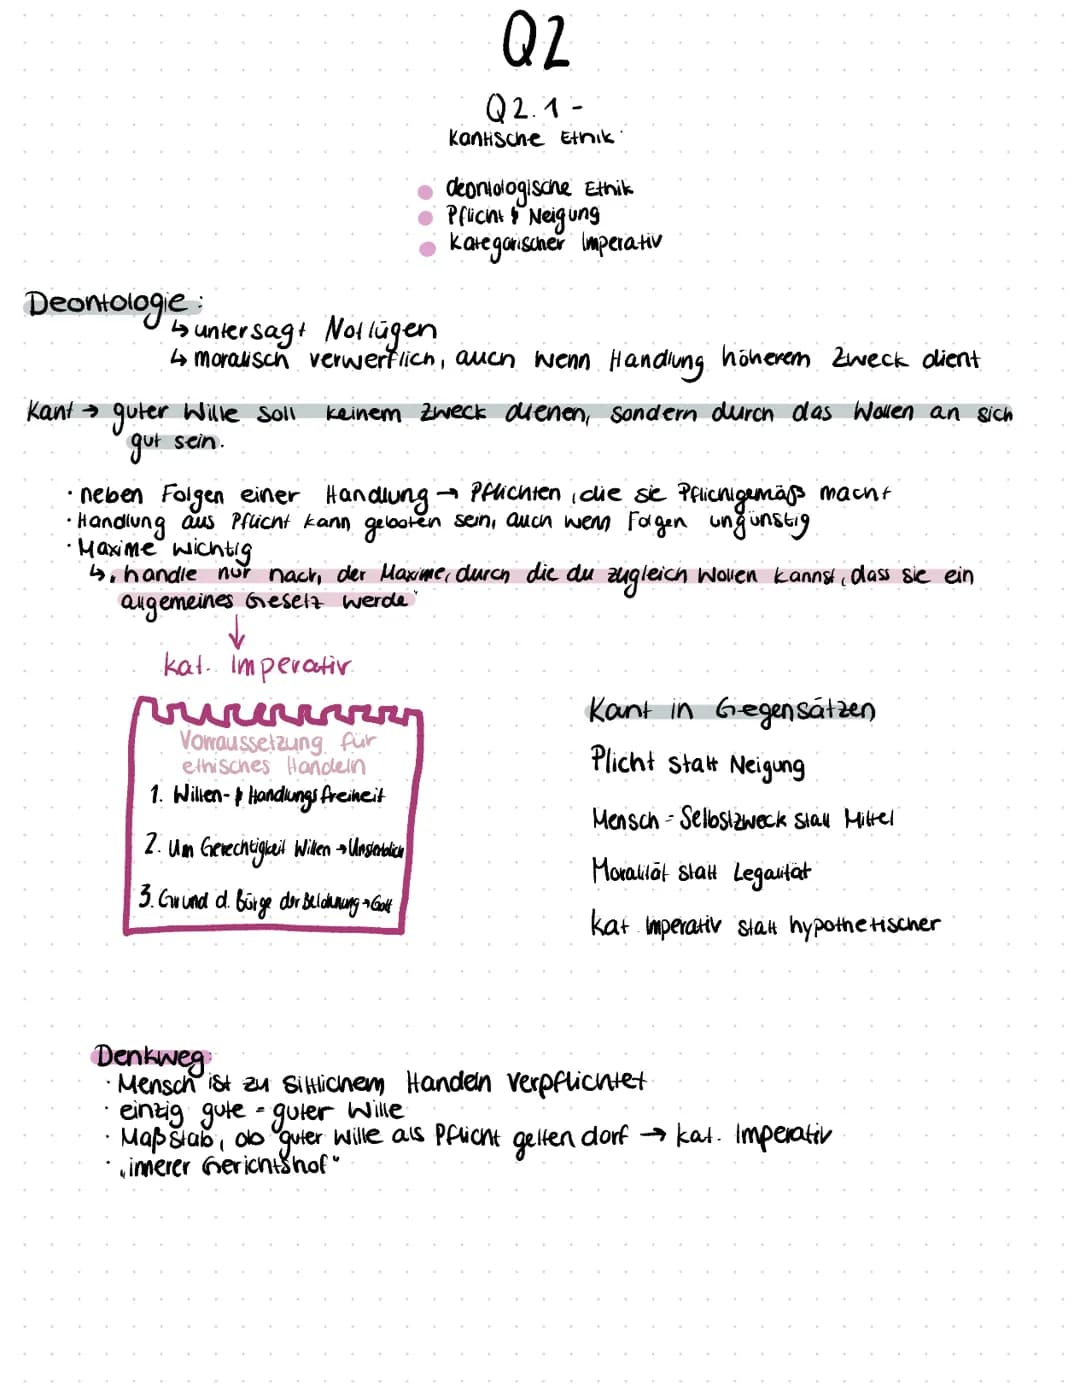 Q2
Q2.1 -
Kantische Ethik
deontologische Ethik
Pflicht & Neigung
Kategorischer Imperativ
Deontologie:
↳ untersagt Notlügen
↳ moralisch verwerflich, auch wenn Handlung höherem Zweck dient
Kant → guter Wille soll keinem Zweck dienen, sondern durch das Wollen an sich
gut sein.
· neben Folgen einer Handlung → Pflichten, die sie Pflichtgemäß macht
· Handlung aus Pflicht kann geboten sein, auch wenn Folgen ungünstig
· Maxime wichtig
↳ „handle nur nach der Maxime, durch die du zugleich wollen kannst, dass sie ein
allgemeines Gesetz werde"
↓
kat. Imperativ
Vorraussetzung für
ethisches Handeln
1. Willen- & Handlungsfreiheit
2. Um Gerechtigkeit Willen → Unsterblich
3. Grund d. Bürge der Belohnung → Gott
Kant in Gegensätzen
Plicht statt Neigung
Mensch = Selbstzweck statt Mittel
Moralität statt Legalität
kat. Imperativ statt hypothetischer
Denkweg:
· Mensch ist zu sittlichem Handeln verpflichtet
· einzig gute = guter Wille
· Maßstab, ob guter Wille als Pflicht gelten darf → kat. Imperativ
· „innerer Gerichtshof"